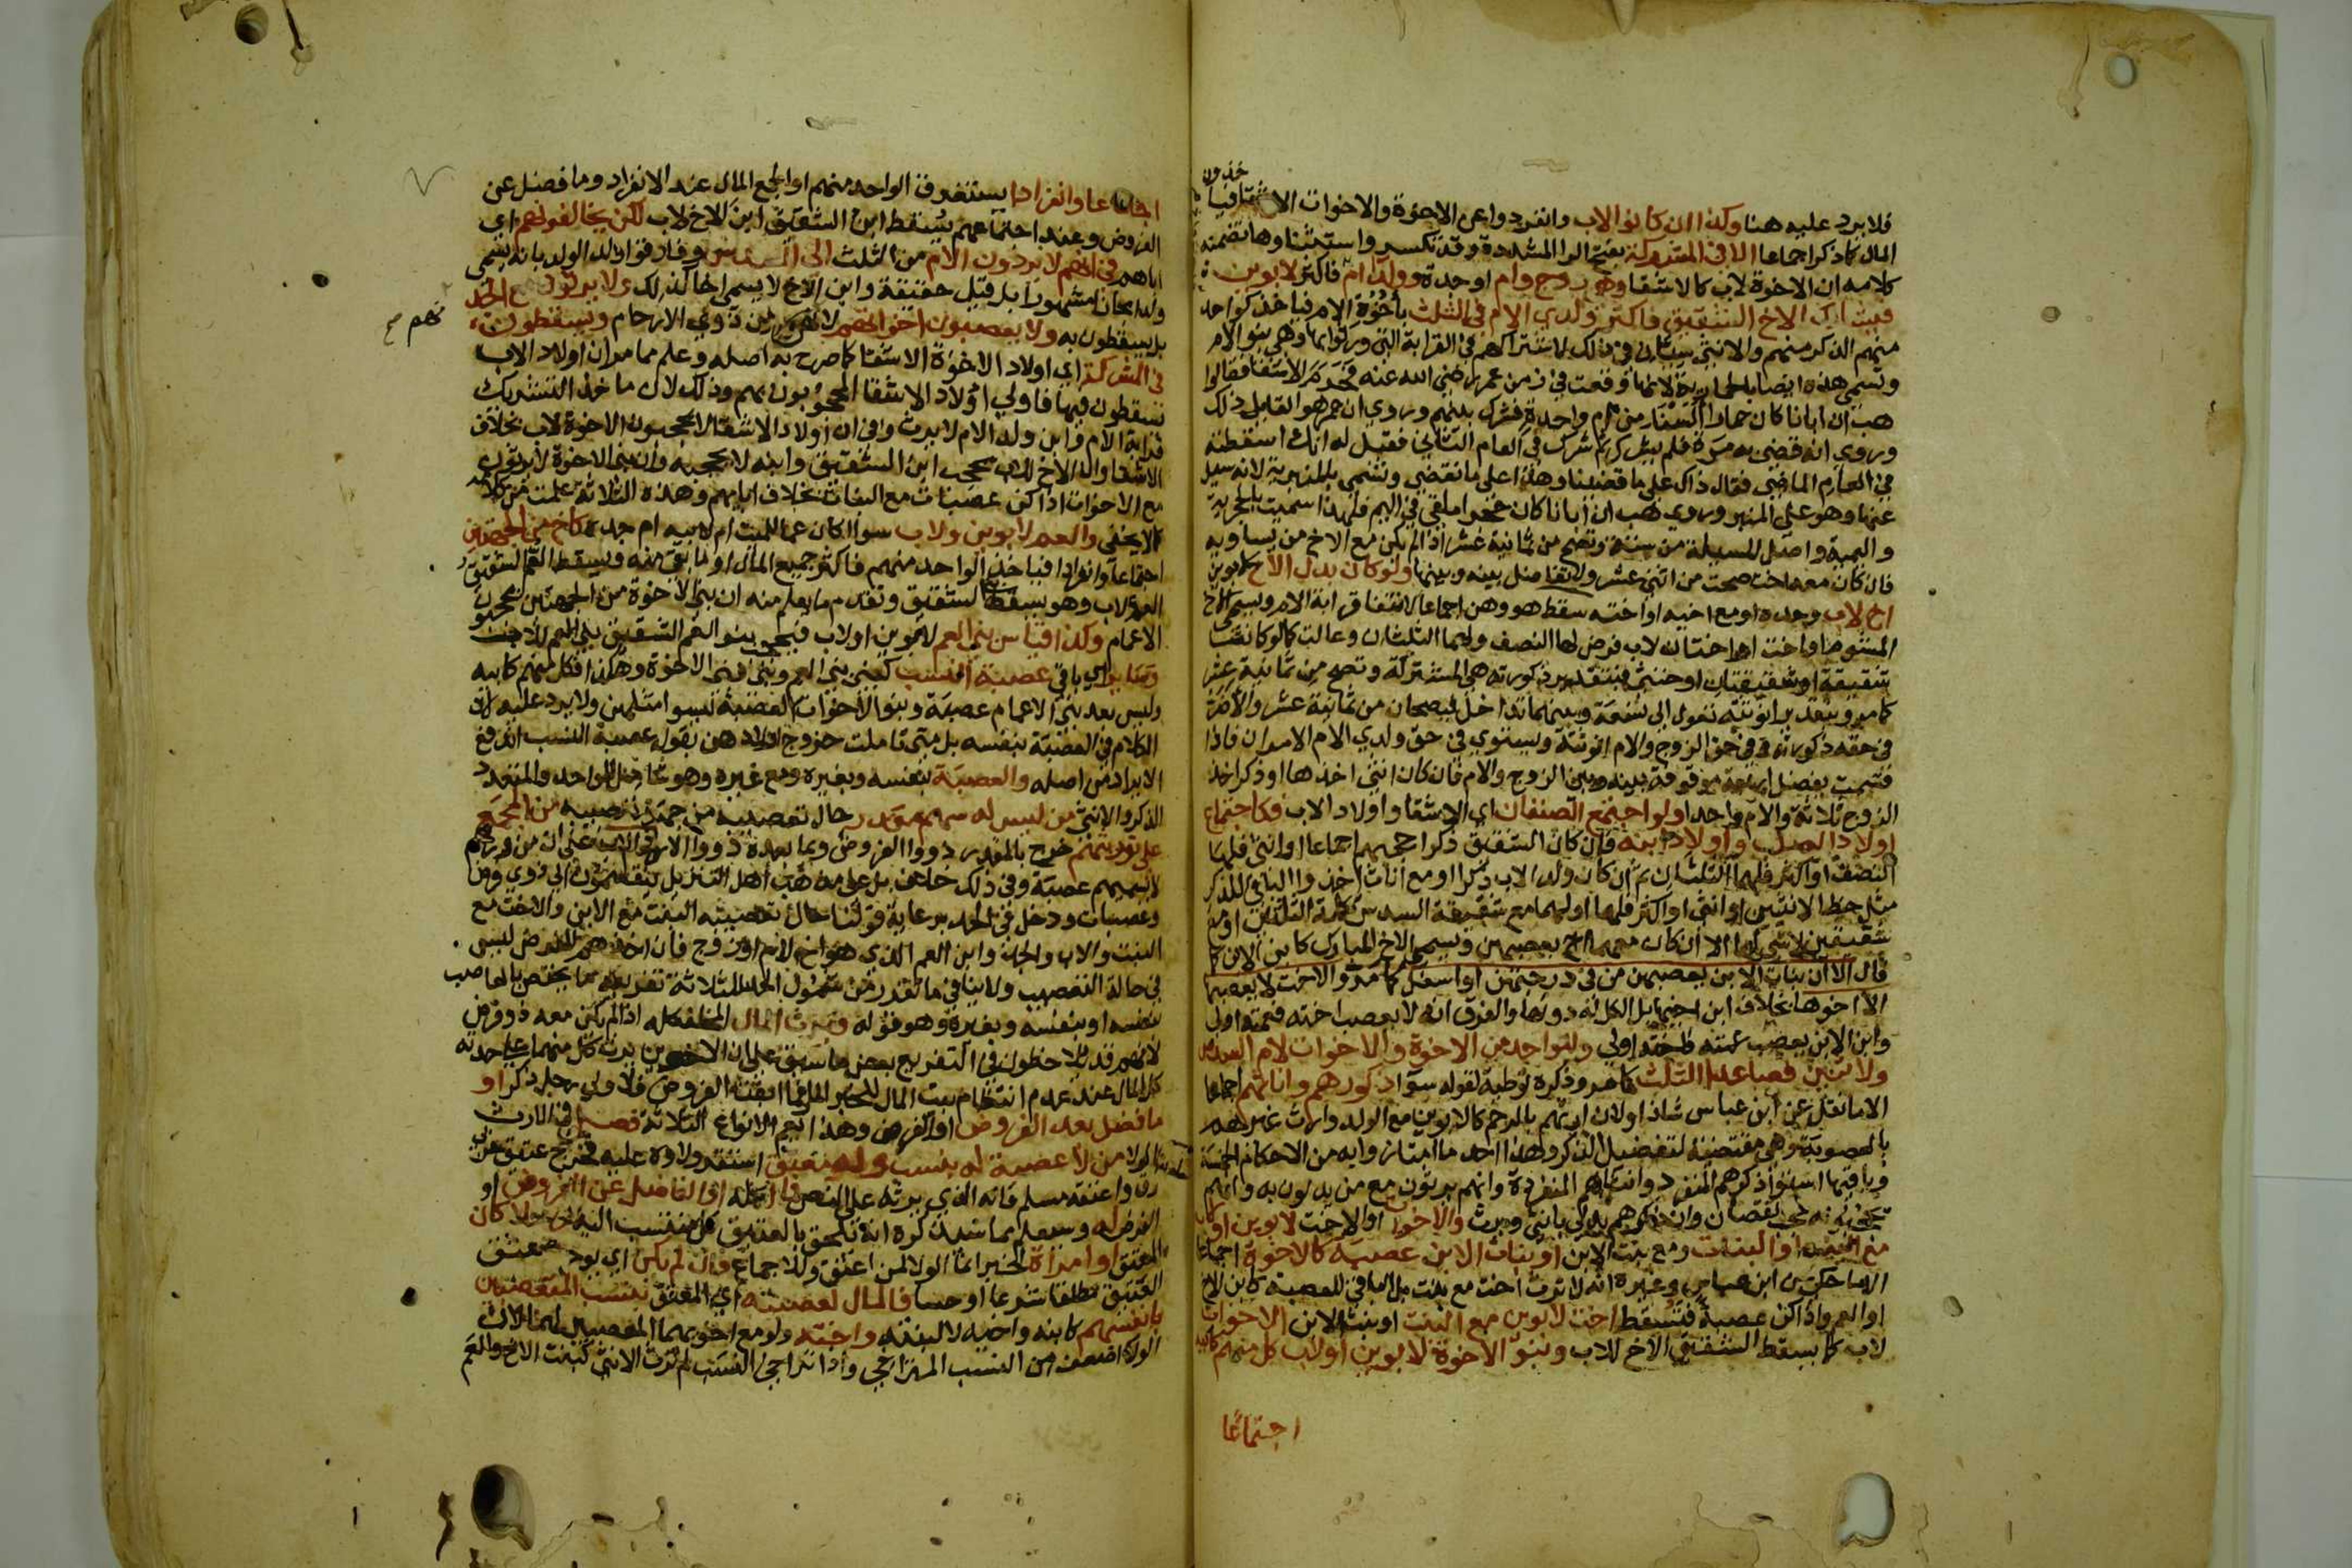 فلا يرد عليه هنا وكذا ان كانوا لاب وانفردوا عن الاخوة والاخوات الاشقا فيا
خذون
المال كما ذكر اجماعا الا في المشركة بفتح الرا المشددة وقد تكسر واستثناوها تضمنه
كلامه ان الاخوة لاب كالاشقا وهي زوج وام او جدة وولدا ام فاكثر لابوين
فيشارك الاخ الشقيق فاكثر ولدي الام في الثلث باخوة الام فياخذ كواحد
منهم الذكر منهم والانثى سيان في ذلك لاشتراكهم في القرابة التي ورثوا بها وهي بنو الام
وتسمى هذه ايضا بالحمارية لانها وقعت في زمن عمر رضي الله عنه فحرم الاشقا فقالوا
هب ان ابانا كان حمارا السنا من ام واحدة فشرك بينهم وروي ان عمر هو القايل ذلك
وروي انه قضى به مرة فلم يشرك ثم شرك في العام الثاني فقيل له انك اسقطته
في العام الماضي فقال ذاك على ما قضينا وهذا على ما نقضي وتسمى بالمنبرية لانه سيل
عنها وهو على المنبر وروي هب ان ابانا كان حجرا ملقى في اليم فلهذا سميت بالحجرية
واليمية واصل المسيلة من ستة وتصح من ثمانية عشر اذا لم يكن مع الاخ من يساويه
فان كان معه اخت صحت من اثني عشر ولا تفاضل بينه وبينها ولو كان بدل الاخ لابوين
اخ لاب وحده او مع اخيه او اخته سقط هو وهن اجماعا لانتفا قرابة الام ويسمى الاخ
المشوم او اخت او اختان لاب فرض لها النصف ولهما الثلثان وعالت كما لو كانتا
شقيقة او شقيقتان او خنثى فبتقدير ذكورته هي المشتركة وتصح من ثمانية عشر
كما مر وبتقدير انوثته تعول الى تسعة وبينهما تداخل فيصحان من ثمانية عشر والاضر
في حقه ذكورته وفي حق الزوج والام انوثته ويستوي في حق ولدي الام الامران فاذا
قسمت يفضل اربعة موقوفة بينه وبين الزوج والام فان كان انثى اخذها او ذكرا اخذ
الزوج ثلاثة والام واحدا ولو اجتمع الصنفان اي الاشقا واولاد الاب فكاجتماع
اولاد الصلب واولاد ابنه فان كان الشقيق ذكرا حجبهم اجماعا او انثى فلها
النصف او اكثر فلهما الثلثان ثم ان كان ولد الاب ذكرا او مع اناث اخذوا الباقي للذكر
مثل حظ الانثيين او انثى او اكثر فلها او لهما مع شقيقة السدس تكملة الثلثين او مع
شقيقتين لا شي لهما الا ان كان معهما اخ يعصبهن ويسمى الاخ المبارك كابن الابن كما
قال الا ان بنات الابن يعصبهن من في درجتهن او اسفل كما مر والاخت لا يعصبها
الا اخوها بخلاف ابن اخيها بل الكل له دونها والفرق انه لا يعصب اخته فعمته اولى
وابن الابن يعصب عمته فاخته اولى وللواحد من الاخوة والاخوات لام السدس
ولاثنين فصاعدا الثلث كما مر وذكره توطية لقوله سوا ذكورهم واناثهم اجماعا
الا ما نقل عن ابن عباس شاذا ولان ارثهم بالرحم كالابوين مع الولد وارث غيرهم
بالعصوبة وهي مقتضية لتفضيل الذكر وهذا احد ما امتازوا به من الاحكام الخمسة
وباقيها استوا ذكرهم المنفرد وانثاهم المنفردة وانهم يرثون مع من يدلون به وانهم
يحجبونه حجب نقصان وان ذكرهم يدلي بانثى ويرث والاخوات او الاخت لابوين او لاب
مع البنت او البنات ومع بنت الابن او بنات الابن عصبة كالاخوة اجماعا
الا ما حكي عن ابن عباس وغيره انه لا ترث اخت مع بنت بل الباقي للعصبة كابن الاخ
او العم واذا كن عصبة فتسقط اخت لابوين مع البنت او بنت الابن الاخوات
لاب كما يسقط الشقيق الاخ للاب وبنو الاخوة لابوين او لاب كل منهم كابيه
اجتماعا
اجتماعا وانفرادا يستغرق الواحد منهم او الجمع المال عند الانفراد وما فضل عن
الفروض وعند اجتماعهم يسقط ابن الشقيق ابن الاخ لاب لكن يخالفونهم اي
اباهم في انهم لا يردون الام من الثلث الى السدس وفارقوا ولد الولد بانه يسمى
ولدا مجازا مشهورا بل قيل حقيقة وابن الاخ لا يسمى اخا كذلك ولا يرثون مع الجد
بل يسقطون به ولا يعصبون اخواتهم لانهن من ذوي الارحام ويسقطون
في المشركة اي اولاد الاخوة الاشقا كما صرح به اصله وعلم مما مر ان اولاد الاب
يسقطون فيها فاولى اولاد الاشقا المحجوبون بهم وذلك لان ماخذ التشريك
قرابة الام وابن ولد الام لا يرث وفي ان اولاد الاشقا لا يحجبون الاخوة لاب بخلاف
الاشقا والاخ للاب يحجب ابن الشقيق وابنه لا يحجبه وان بني الاخوة لا يرثون
مع الاخوات اذا كن عصبات مع البنات بخلاف ابايهم وهذه الثلاثة علمت من كلامه
كما لا يخفى والعم لابوين ولاب سوا كان عما للميت ام لابيه ام جده كاخ من الجهتين
اجتماعا وانفرادا فياخذ الواحد منهم فاكثر جميع المال او ما بقي منه ويسقط العم الشقيق
العم لاب وهو يسقط بني الشقيق وتقدم ما يعلم منه ان بني الاخوة من الجهتين يحجبون
الاعمام وكذا قياس بني العم لابوين او لاب فيحجب بنو العم الشقيق بني العم للاب
وساير اي باقي عصبة النسب كبني بني العم وبني بني الاخوة وهكذا فكل منهم كابيه
وليس بعد بني الاعمام عصبة وبنو الاخوات العصبة ليسوا مثلهن ولا يرد عليه لان
الكلام في العصبة بنفسه بل متى تاملت خروج اولادهن بقوله عصبة النسب اندفع
الايراد من اصله والعصبة بنفسه وبغيره ومع غيره وهو شامل للواحد والمتعدد
الذكر والانثى من ليس له سهم مقدر حال تعصيبه من جهة تعصيبه من المجمع
على توريثهم خرج بالمقدر ذووا الفروض وبما بعده ذووا الارحام على ان من ورثهم
لا يسميهم عصبة وفي ذلك خلاف بل على مذهب اهل التنزيل ينقسمون الى ذوي فرض
وعصبات ودخل في الحد برعاية قولنا حال تعصيبه البنت مع الابن والاخت مع
البنت والاب والجد وابن العم الذي هو اخ لام او زوج فان اخذهم للفرض ليس
في حالة التعصيب ولا ينافي ما تقدر من شمول الحد للثلاثة تفريعه بما يختص بالعاصب
بنفسه او بنفسه وبغيره وهو قوله فيرث المال المخلف كله اذا لم يكن معه ذو فرض
لانهم قد يلاحظون في التفريع بعض ما سبق على ان الاخوين يرث كل منهما على حدته
كل المال عند عدم انتظام بيت المال للخبر المار فما ابقت الفروض فلاولى رجل ذكر او
ما فضل بعد الفروض او الفرض وهذا يعم الانواع الثلاثة فصل في الارث
بالولا من لا عصبة له بنسب وله معتق استقر ولاوه عليه فخرج عتيق حربي
رق واعتقه مسلم فانه الذي يرثه على النص فماله او الفاضل عن الفروض او
الفرض له وسيعلم مما سنذكره انه يلحق بالعتيق كل منتسب اليه رجلا كان
المعتق او امراة لخبر انما الولا لمن اعتق وللاجماع فان لم يكن اي يوجد معتق
العتيق مطلقا شرعا او حسا فالمال لعصبته اي المعتق بنسب المتعصبين
بانفسهم كابنه واخيه لا لبنته واخته ولو مع اخويهما المعصبين لهما لان
الولا اضعف من النسب المتراخي واذا تراخى النسب لم ترث الانثى كبنت الاخ والعم